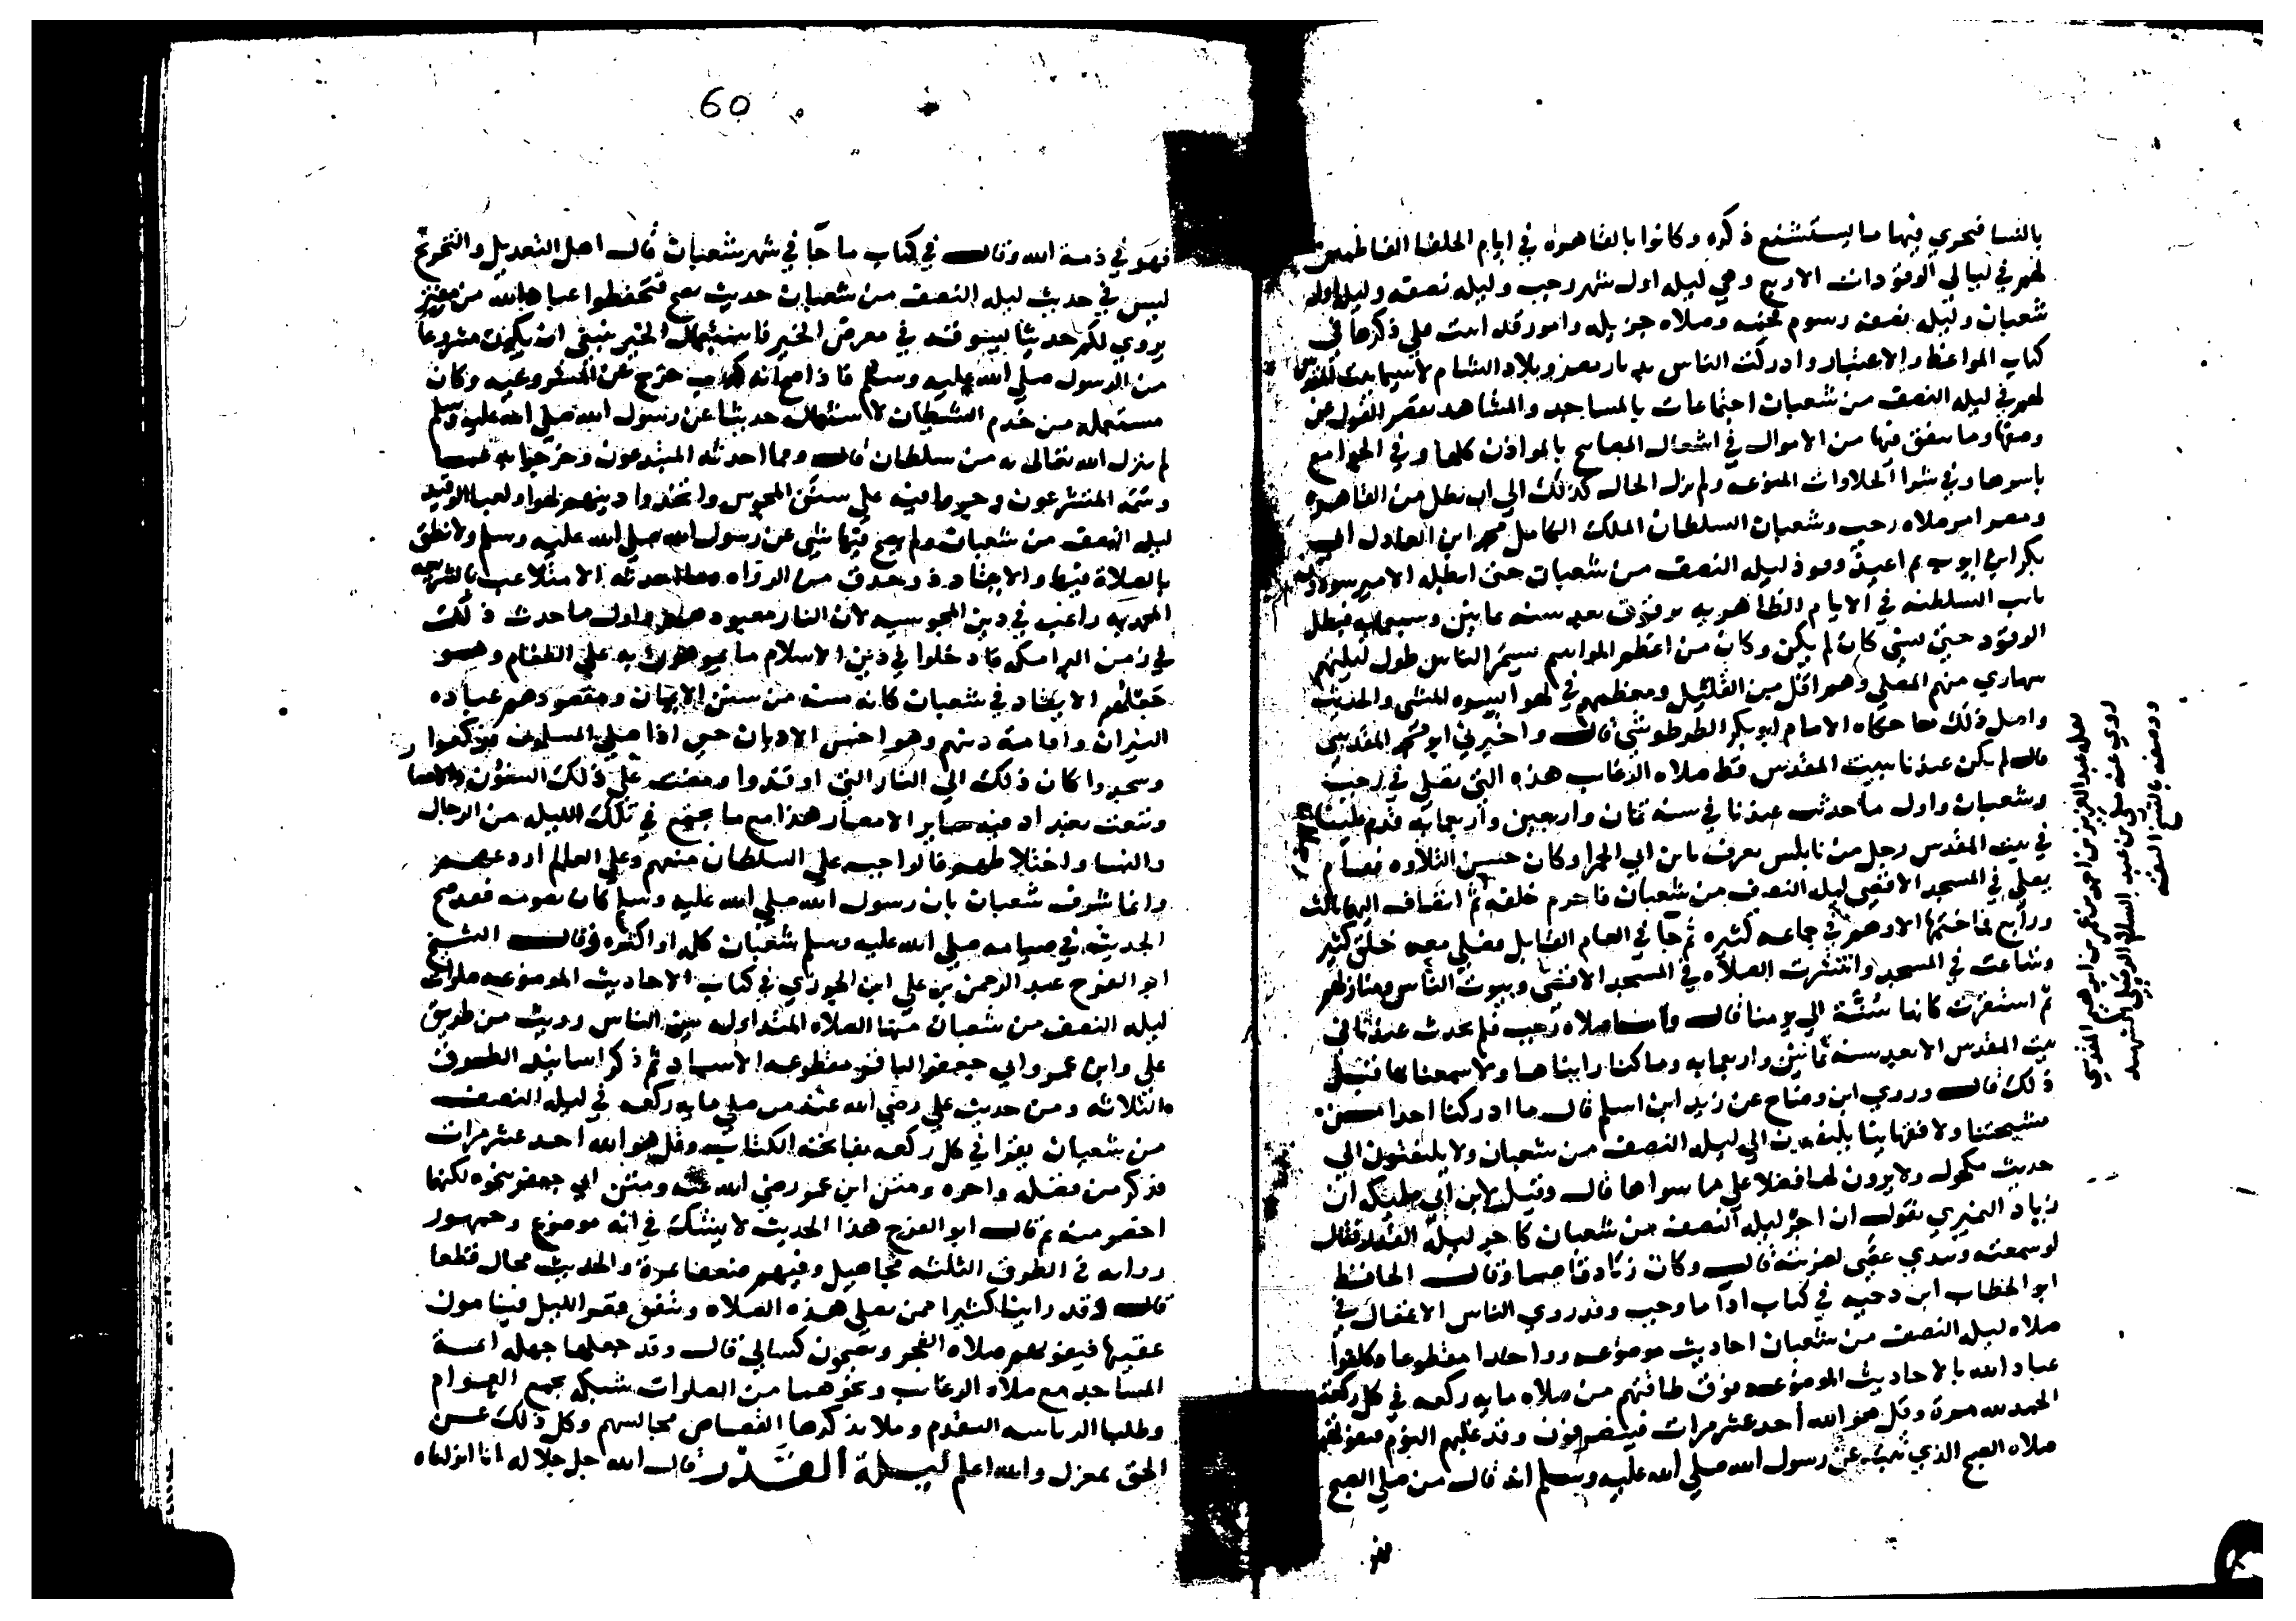 بالنسا فيجري فيها ما يستشنع ذكره وكانوا بالقاهره في ايام الخلفا الفاطميين
لهم في ليالي الوقودات الاربع وهي ليله اول شهر رجب وليله نصفه وليله اول
شعبان وليله نصفه رسوم وصلاه جزيله وامور قد اتيت علي ذكرها في
كتاب المواعظ والاعتبار وادركت الناس بديار مصر وبلاد الشام لا سيما بيت المقدس
لهم في ليله النصف من شعبان اجتماعات بالمساجد والمشاهد يقصر القول عن
وصفها وما ينفق فيها من الاموال في اشعال المصابيح بالمواذن كلها وفي الجوامع
باسرها وفي شرا الحلاوات المنوعه ولم يزل الحال كذلك الي ان بطل من القاهره
ومصر امر صلاه رجب وشعبان السلطان الملك الكامل محمد ابن العادل ابي
بكر ابن ايوب ثم اعيد وقود ليله النصف من شعبان حتي ابطله الامير سودون
نايب السلطنه في الايام الظاهريه برقوق بعد سنه ثمانين وسبعمايه فبطل
الوقود حتي نسي كان لم يكن وكان من اعظم المواسم يسمر الناس طول ليلتهم
سهاري منهم المصلي وهم اقل من القليل ومعظمهم في لهو
واصل ذلك ما حكاه الامام ابو بكر الطرطوشي قال واخبرني ابو محمد المقدسي
قال لم يكن عندنا ببيت المقدس قط صلاه الرغايب هذه التي تصلي في رجب
وشعبان واول ما حدثت عندنا في سنه ثمان واربعين واربعمايه قدم علينا
في بيت المقدس رجل من نابلس يعرف بابن ابي الحمرا وكان حسن التلاوه فقام
يصلي في المسجد الاقصي ليله النصف من شعبان فاحرم خلفه ثم انضاف اليهما ثالث
ورابع فما ختمها الا وهو في جماعه كثيره ثم جا في العام القابل فصلي معه خلق كثير
وشاعت في المسجد وانتشرت الصلاه في المسجد الاقصي وبيوت الناس ومنازلهم
ثم استقرت كانها سُنَّة الي يومنا قال واما صلاه رجب فلم تحدث عندنا في
بيت المقدس الا بعد سنه ثمانين واربعمايه وما كنا رايناها ولا سمعنا بها قبل
ذلك قال وروي ابن وضاح عن زيد ابن اسلم قال ما ادركنا احدا من
مشيختنا ولا فقهاينا يلتفتون الي ليله النصف من شعبان ولا يلتفتون الي
حديث مكحول ولا يرون لها فضلا علي ما سواها قال وقيل لابن ابي مليكه ان
زياد النميري يقول ان اجر ليله النصف من شعبان كاجر ليله القدر فقال
لو سمعته وبيدي عصي لضربته قال وكان زياد قاصا وقال الحافظ
ابو الخطاب ابن دحيه في كتاب ادا ما وجب وقد روي الناس الاغفال في
صلاه ليله النصف من شعبان احاديث موضوعه وواحدا مقطوعا وكلفوا
عباد الله بالاحاديث الموضوعه فوق طاقتهم من صلاه مايه ركعه في كل ركعة
الحمد لله مرة وقل هو الله أحد عشر مرات فينصرفون وقد غلبهم النوم فتفوتهم
صلاه الصبح الذي ثبت عن رسول الله صلي الله عليه وسلم انه قال من صلي الصبح
فهو
عبد العزيز بن احمد بن عمر بن ابرهيم المقدسي
روي عنه بن عبد السلام
ووصفه بالثقه
60
فهَو في ذمة الله وقال في كتاب ما جآ في شهر شعبان قال اهل التعديل والتجريح
ليس في حديث ليله النصف من شعبان حديث يصح فتحفظوا عباد الله من مفتر
يروي لكم حديثا يسوقه في معرض الخير فاستعمال الخير ينبغي ان يكون مشروعا
من الرسول صلي الله عليه وسلم فاذا صح انه كذب خرج عن المشروعيه وكان
مستعمله من خدم الشيطان لاستعماله حديثا عن رسول الله صلي الله عليه وسلم
لم ينزل الله تعالي به من سلطان قال ومما احدثه المبتدعون وخرجوا به عما
وسمه المتشرعون وجروا فيه علي سنن المجوس واتخذوا دينهم لهوا ولعبا الوقيد
ليله النصف من شعبان ولم يصح فيها شي عن رسول الله صلي الله عليه وسلم ولا نطق
بالصلاة فيها والايقاد ذو صدق من الرواه وما احدثه الا متلاعب بالشريعه
المحمديه راغب في دين المجوسيه لان النار معبودهم واول ما حدث ذلك
في زمن البرامكه فادخلوا في دين الاسلام ما يموهون به علي الطغام وهو
جَعْلهم الايقاد في شعبان كانه سنه من سنن الايمان ومقصودهم عباده
النيران واقامة دينهم وهو اخس الاديان حتي اذا صلي المسلمون وركعوا
وسجدوا كان ذلك الي النار التي اوقدوا ومضت علي ذلك السنون والاعصار
وتبعت بغداد فيه ساير الامصار هذا مع ما يجتمع في تلك الليله من الرجال
والنسا واختلاطهم فالواجب علي السلطان منعهم وعلي العالم ردعهم
وانما شرف شعبان بان رسول الله صلي الله عليه وسلم كان يصومه فقد صح
الحديث في صيامه صلي الله عليه وسلم شعبان كله او اكثره وقال الشيخ
ابو الفرج عبد الرحمن بن علي ابن الجوزي في كتاب الاحاديث الموضوعه صلوات
ليله النصف من شعبان منها الصلاه المتداوله بين الناس رويت من طريق
علي وابن عمر وابي جعفر الباقر مقطوعه الاسناد ثم ذكر اسانيد الطرق
الثلاثه ومن حديث علي رضي الله عنه من صلي مايه ركعه في ليله النصف
من شعبان يقرا في كل ركعه بفاتحه الكتاب وقل هو الله أحد عشر مرات
فذكر من فضله واجره ومتن ابن عمر رضي الله عنه ومتن ابي جعفر نحوه لكنها
اخصر منه ثم قال ابو الفرج هذا الحديث لا يشك في انه موضوع وجمهور
رواته في الطرق الثلثه مجاهيل وفيهم ضعفا بمرة والحديث محال قطعا
قال وقد راينا كثيرا ممن يصلي هذه الصلاه ويتفق قصر الليل فينامون
عقيبها فيفوتهم صلاه الفجر ويصبحون كسالي قال وقد جعلها جهله ايمة
المساجد مع صلاه الرغايب ونحوهما من الصلوات شبكه لجمع العوام
وطلبا لرياسه التقدم وملا بذكرها القصاص مجالسهم وكل ذلك عن
الحق بمعزل والله اعلم ليلة القَدْر قال الله جل جلاله انا انزلناه